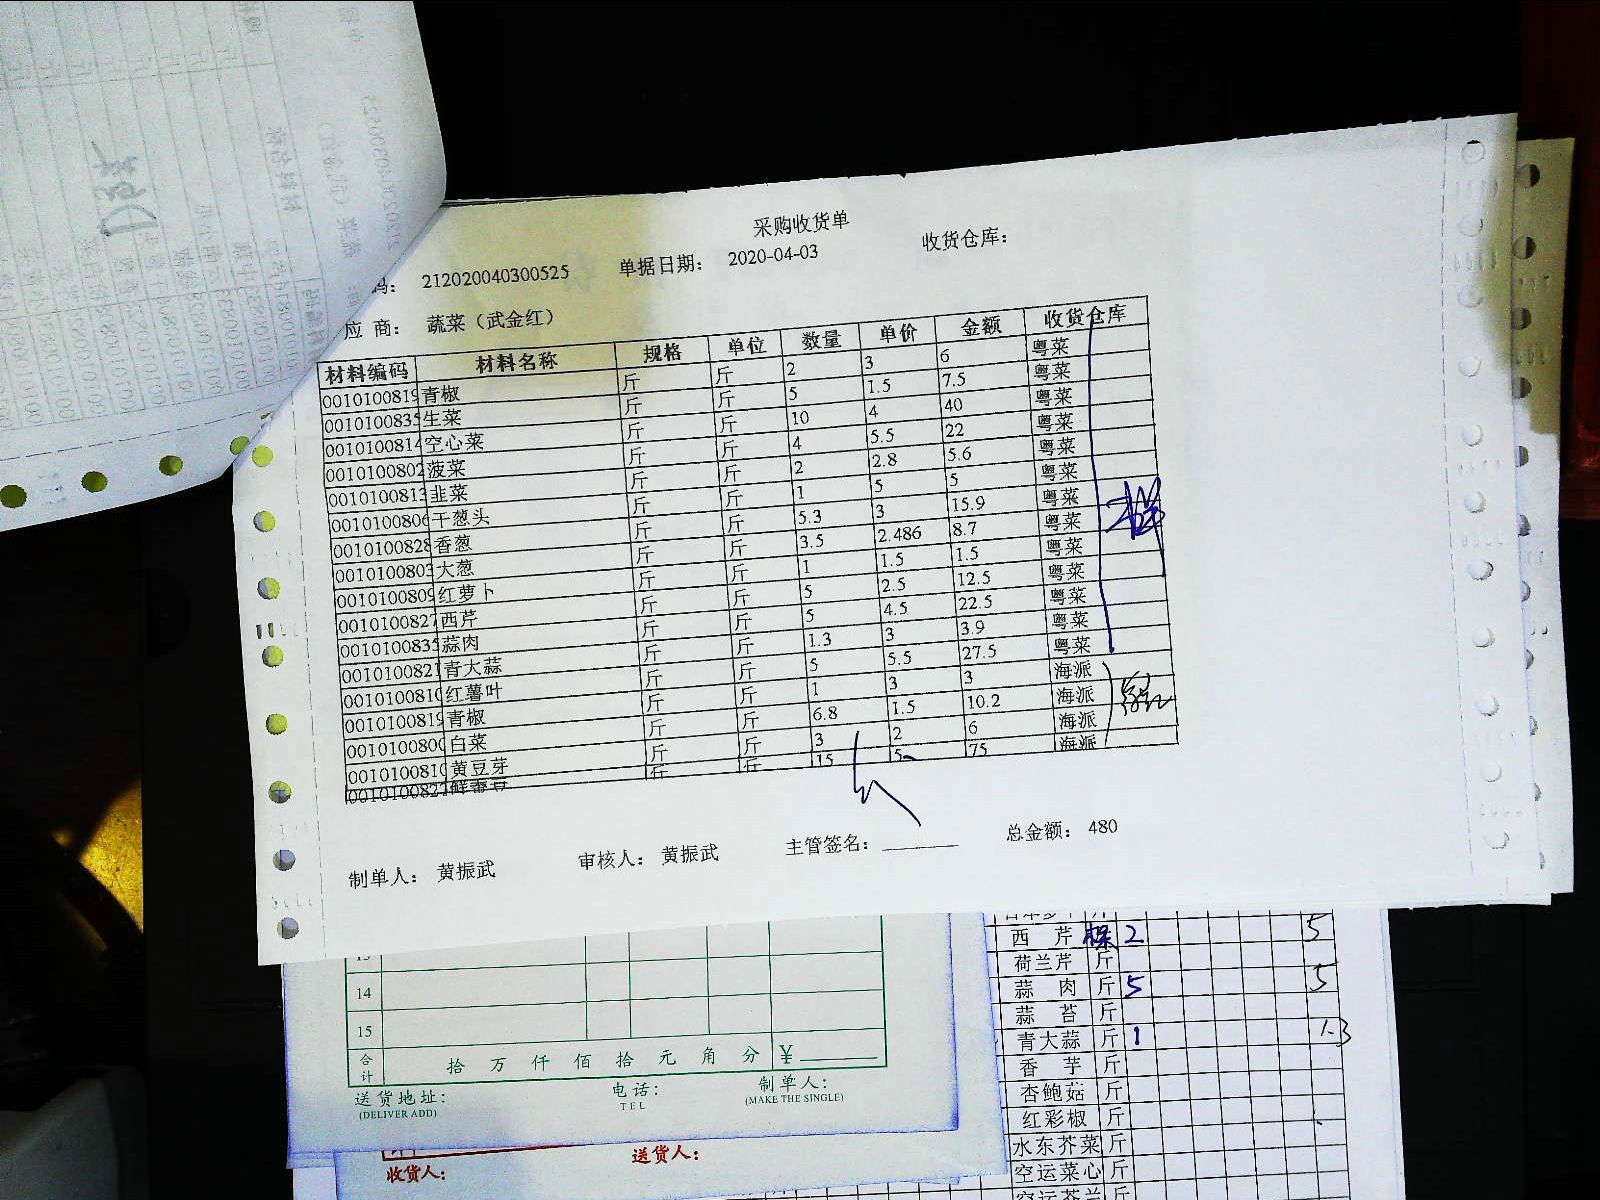 采购收货单
码： 212020040300525 单据日期： 2020-04-03 收货仓库：
应 商： 蔬菜（武金红）
材料编码 材料名称 规格 单位 数量 单价 金额 收货仓库
0010100819 青椒 斤 斤 2 3 6 粤菜
001010083 生菜 斤 斤 5 1.5 7.5 粤菜
0010100814 空心菜 斤 斤 10 4 40 粤菜
0010100802 菠菜 斤 斤 4 5.5 22 粤菜
0010100813 韭菜 斤 斤 2 2.8 5.6 粤菜
0010100806 干葱头 斤 斤 1 5 5 粤菜
0010100828 香葱 斤 斤 5.3 3 15.9 粤菜
0010100803 大葱 斤 斤 3.5 2.486 8.7 粤菜
0010100809 红萝卜 斤 斤 1 1.5 1.5 粤菜
0010100827 西芹 斤 斤 5 2.5 12.5 粤菜
001010083 蒜肉 斤 斤 5 4.5 22.5 粤菜
0010100821 青大蒜 斤 斤 1.3 3 3.9 粤菜
001010081 红薯叶 斤 斤 5 5.5 27.5 粤菜
0010100819 青椒 斤 斤 1 3 3 海派
001010080 白菜 斤 斤 6.8 1.5 10.2 海派
001010081 黄豆芽 斤 斤 3 2 6 海派
001010082 斤 斤 15 5 75 海派
制单人： 黄振武 审核人： 黄振武 主管签名： 总金额： 480
14
15
合计 拾 万 仟 佰 拾 元 角 分 ¥
送货地址： 电话： 制单人：
(DELIVER ADD) TEL (MAKE THE SINGLE)
收货人： 送货人：
西 芹 棵 2 5
荷兰芹 斤
蒜 肉 斤 5 5
蒜 苔 斤
青大蒜 斤 1 1.3
香 芋 斤
杏鲍菇 斤
红彩椒 斤
水东芥菜 斤
空运菜心 斤